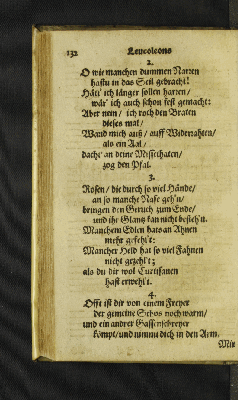 132 Leucoleons
2.
O wie manchen dummen Narren
hastu in das Seil gebracht!
Hätt' ich länger sollen harren/
wär' ich auch schon fest gemacht:
Aber nein/ ich roch den Braten
dieses mal/
Wand mich auß/ auff Widerrahten/
als ein Aal/
dacht' an deine Missethaten/
zog den Pfal.
3.
Rosen/ die durch so viel Hände/
an so manche Nase geh'n/
bringen den Geruch zum Ende/
und ihr Glantz kan nicht besteh'n.
Manchem Edlen hats an Ahnen
mehr gefehl't:
Mancher Held hat so viel Fahnen
nicht gezehl't;
als du dir wol Curtisanen
hast erwehl't.
4.
Offt ist dir von einem Freyer
der gemeine Schos noch warm/
und ein andrer Gassenschreyer
kömpt/ und nimmt dich in den Arm.
Mit